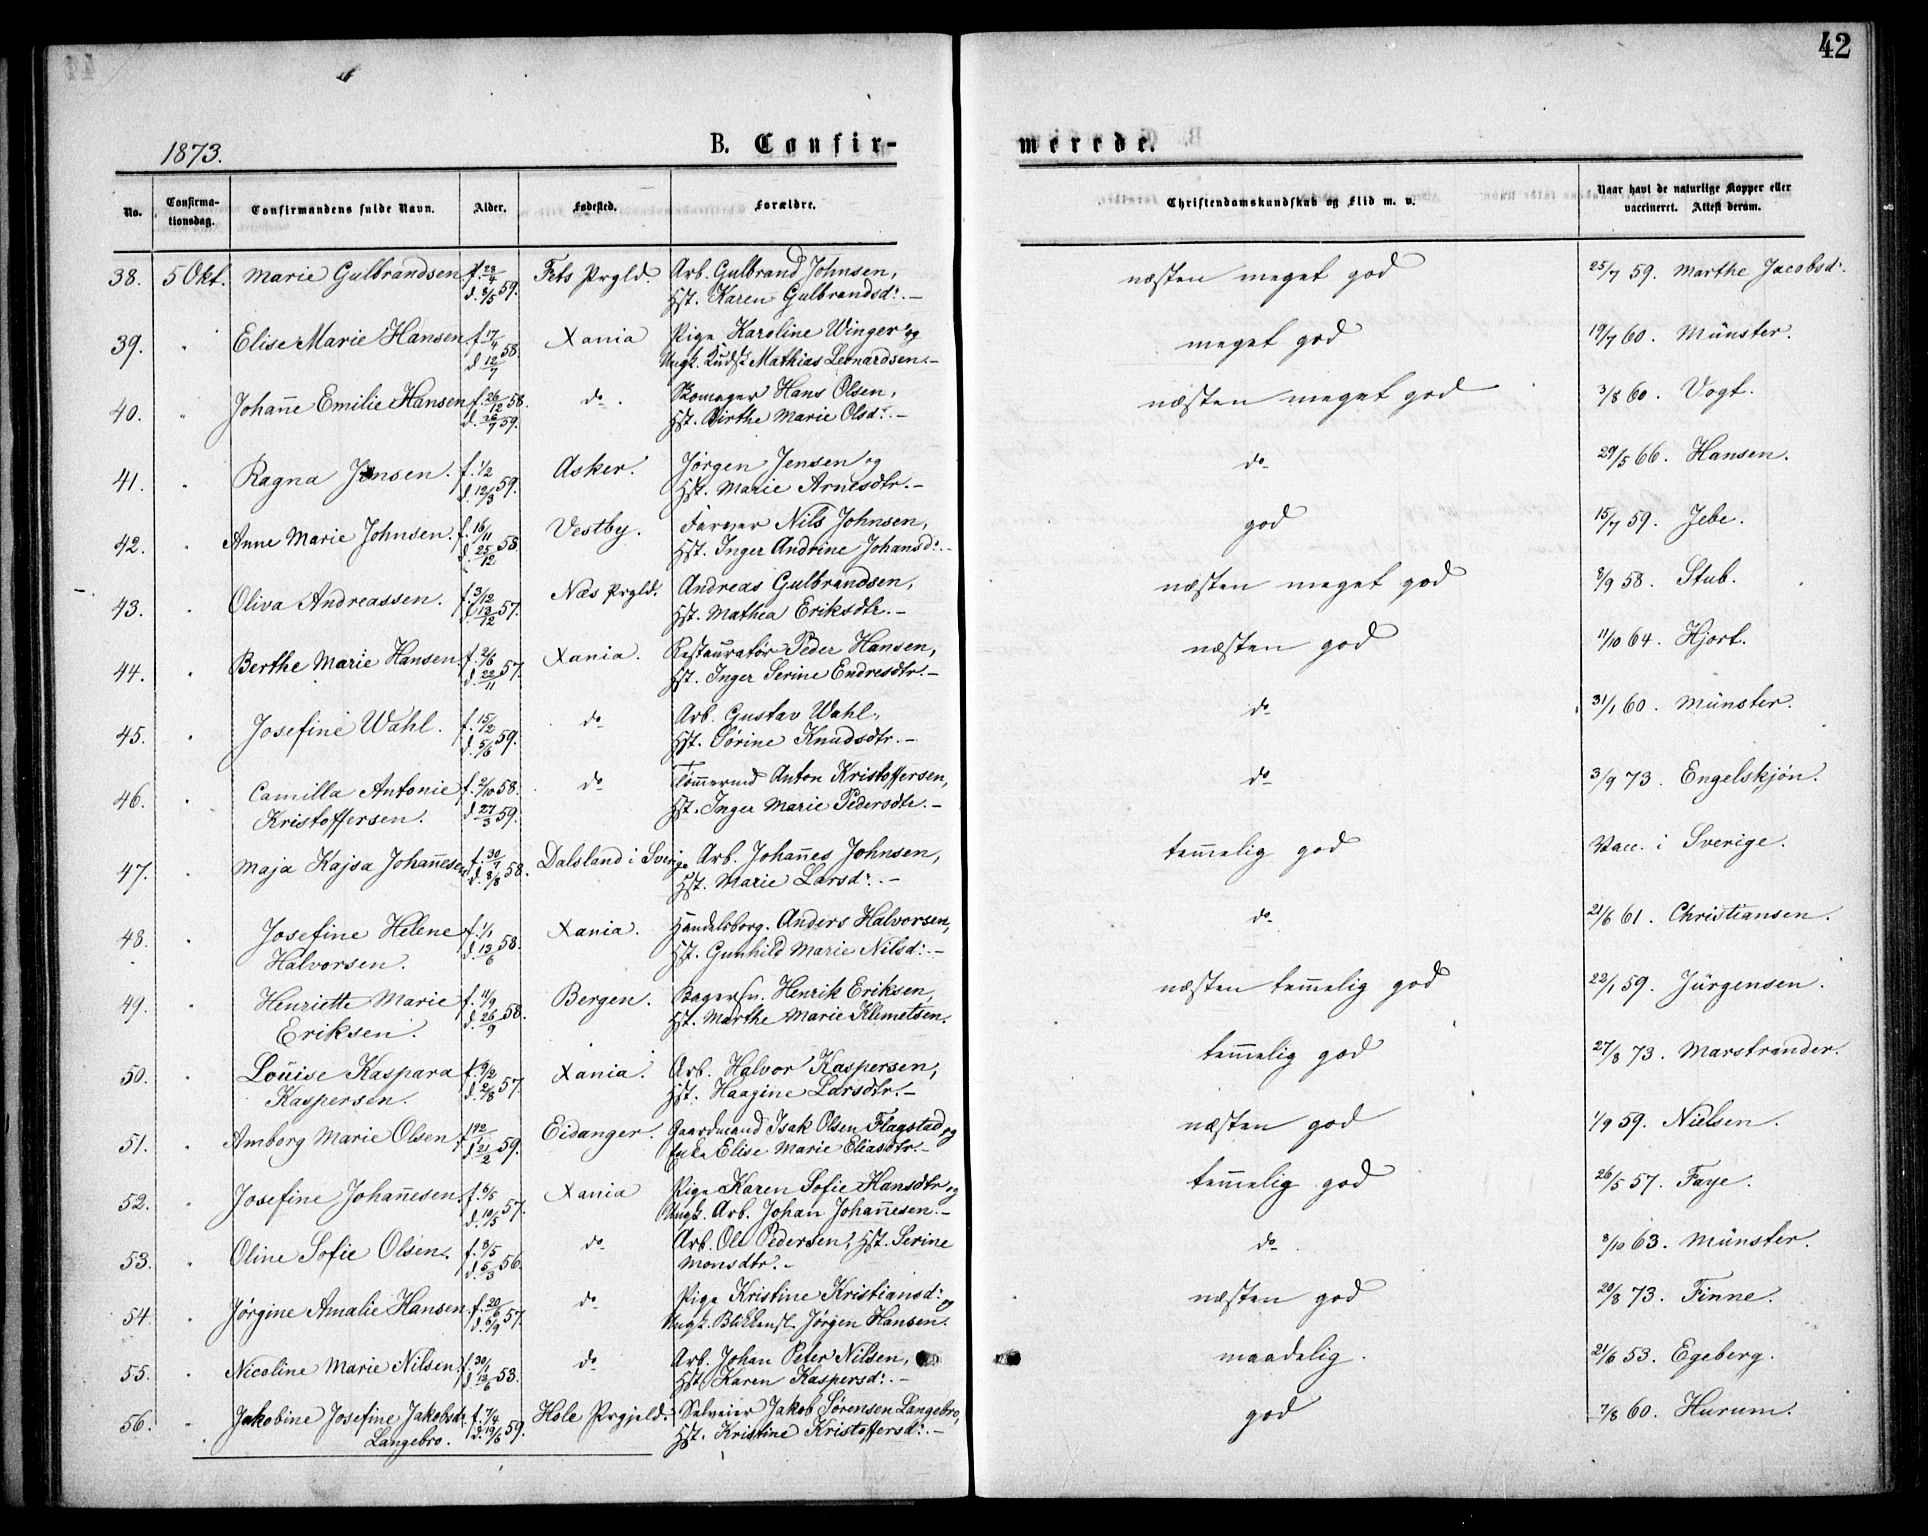 42
1873.
B. Confir-
merede.
No.
Confirma-
tionsdag.
Confirmandens fulde Navn.
Alder.
Fødested.
Forældre.
Christendomskundskab og Flid m. v.
Naar havt de naturlige Kopper eller
vaccineret. Attest derom.
38. 5 Okt. Marie Gulbrandsen f. 23/4 Fets Prgld. Arb. Gulbrand Johnsen, næsten meget god 25/7 59. Marthe Jacobsd:
d. 8/5 59. Hst. Karen Gulbrandsd:.–
39. " Elise Marie Hansen f. 17/4 58. Xania Pige Karoline Winger og meget god 19/7 60. Münster.
d. 12/7 Ungk. Mathias Leonardsen.–
40. " Johan̄e Emilie Hansen f. 26/12 58. do. Skomager Hans Olsen, næsten meget god 3/8 60. Vogt.
d. 26/7 59. Hst. Birthe Marie Olsd:.–
41. " Ragna Jensen. f. 1/2 Asker. Jørgen Jensen og do 29/5 66. Hansen.
d. 12/3 59. Hst. Marie Arnesdtr.–
42. " Anne Marie Johnsen. f. 16/11 Vestby. Farver Nils Johnsen, god 15/7 59. Jebe.
d. 25/12 58. Hst. Inger Andrine Johansd:.–
43. " Oliva Andreassen. f. 3/12 Næs Prgld. Andreas Gulbrandsen, næsten meget god 8/9 58. Stub.
d. 13/12 57. Hst. Mathea Eriksdtr.–
44. " Berthe Marie Hansen. f. 2/6 Xania. Restauratør Peder Hansen, næsten god 11/10 64. Hjort.
d. 22/11 57. Hst. Inger Serine Endresdtr.–
45. " Josefine Wahl. f. 15/2 do Arb. Gustav Wahl, do 31/1 60. Münster.
d. 5/6 59. Hst. Sørine Knudsdtr.–
46. " Camilla Antonie f. 2/10 58. do Tøm̄ermd Anton Kristoffersen, do 3/9 73. Engelskjøn.
Kristoffersen. d. 27/3 59. Hst. Inger Marie Pedersdtr.–
47. " Maja Kajsa Johan̄esen f. 30/7 Dalsland i Sverige Arb. Johan̄es Johnsen, tem̄elig god Vacc. i Sverige.
d. 8/8 58. Hst. Marie Larsd:.–
48. " Josefine Helene f. 1/1 Xania. Handelsborg. Anders Halvorsen, do 21/6 61. Christiansen.
Halvorsen. d. 13/6 58. Hst. Gunhild Marie Nilsd:.–
49. " Henriette Marie f. 11/9 Bergen. Bagersv. Henrik Eriksen, næsten tem̄elig god 22/1 59. Jürgensen.
Eriksen. d. 26/9 58. Hst. Marthe Marie Klimetsen.
50. " Louise Kaspara f. 9/2 Xania. Arb. Halvor Kaspersen, tem̄elig god 27/8 73. Marstrander.
Kaspersen. d. 2/8 57. Hst. Haagine Larsdtr.–
51. " Amborg Marie Olsen. Eidanger. Gaardmand Isak Olsen Flagstad og næsten god 1/9 59. Nielsen.
d. 21/2 59. Enke Elise Marie Eliasdtr.–
52. " Josefine Johan̄esen. f. 6/5 Xania Pige Karen Sofie Hansdtr og tem̄elig god 26/5 57. Faye.
d. 10/5 57. Ungk. Arb. Johan Johan̄esen.–
53. " Oline Sofie Olsen. f. 8/5 do Arb. Ole Pedersen, Hst. Serine do 8/10 63. Münster.
d. 5/3 56. Monsdtr.–
54. " Jørgine Amalie Hansen. f. 20/6 do Pige Kristine Kristiansd: og næsten god 20/8 73. Finne.
d. 6/9 57. Ungk. Blikkensl. Jørgen Hansen.
55. " Nicoline Marie Nilsen. f. 30/1 do Arb. Johan Peter Nilsen, maadelig. 21/6 53. Egeberg.
d. 12/6 53. Hst. Karen Kaspersd:.–
56. " Jakobine Josefine Jakobsd: f. 7/4 Hole Prgjeld. Selveier Jakob Sørensen Langebro, god 7/8 60. Hurum.
Langebro. d. 19/6 59. Hst. Kristine Kristoffersd:.–